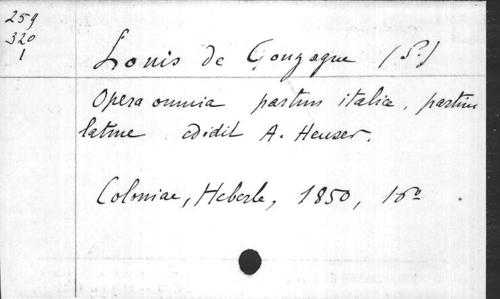 259
320
1
Louis de Gonzague (St.)
Opera omnia partim italice, partim
latine edidit A. Heuser.
Coloniae, Heberle, 1850, 16o